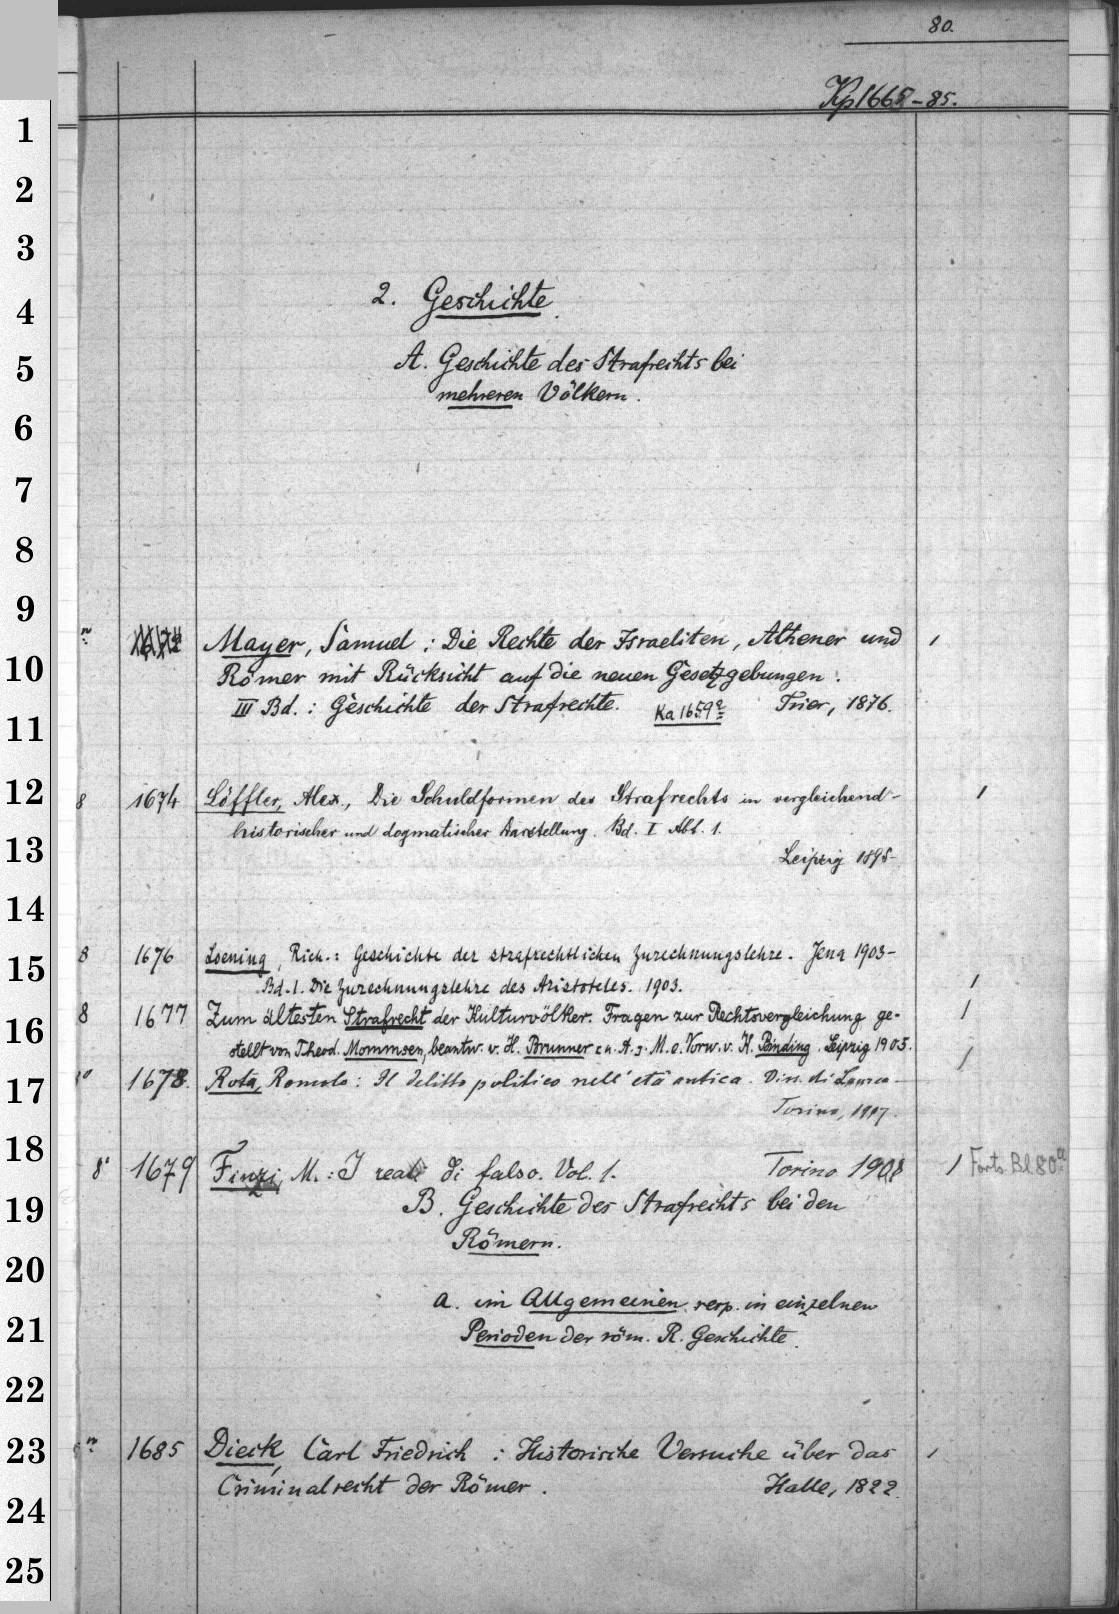 80.
Kp 1665-85.
1
2
3
2. Geschichte.
4
A. Geschichte des Strafrechts bei
5
mehreren Völkern.
6
7
8
9
Mayer, Samuel: Die Rechte der Israeliten, Athener und
10
Römer mit Rücksicht auf die neuen Gesetzgebungen.
III Bd.: Geschichte der Strafrechte. Ka 1659a Trier, 1876.
11
12
8 1674 Löffler, Alex., Die Schuldformen des Strafrechts in vergleichend-
historischer und dogmatischer Darstellung. Bd. I Abt. 1.
13
Leipzig 1895-
14
8 1676 Loening, Rich.: Geschichte der strafrechtlichen Zurechnungslehre. Jena 1903-
15
Bd. 1. Die Zurechnungslehre des Aristoteles. 1903.
8 1677 Zum ältesten Strafrecht der Kulturvölker. Fragen zur Rechtsvergleichung ge-
16
stellt von Theod. Mommsen, beantw. v. H. Brunner u. A. M. e. Vorw. v. K. Binding. Leipzig 1905.
17
1678. Rota, Romolo: Il delitto politico nell'età antica. Diss. di Laurea
Torino, 1907.
18
8° 1679 Finzi, M.: I reati di falso. Vol. 1. Torino 1908 1 Forts. Bl. 80a
19
B. Geschichte des Strafrechts bei den
Römern.
20
a. im Allgemeinen resp. in einzelnen
21
Perioden der röm. R. Geschichte.
22
23
1685 Dieck, Carl Friedrich: Historische Versuche über das
24
Criminalrecht der Römer. Halle, 1822.
25